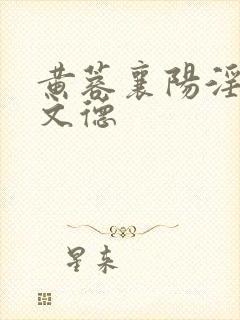 黄蓉襄陽淫
文德
星来